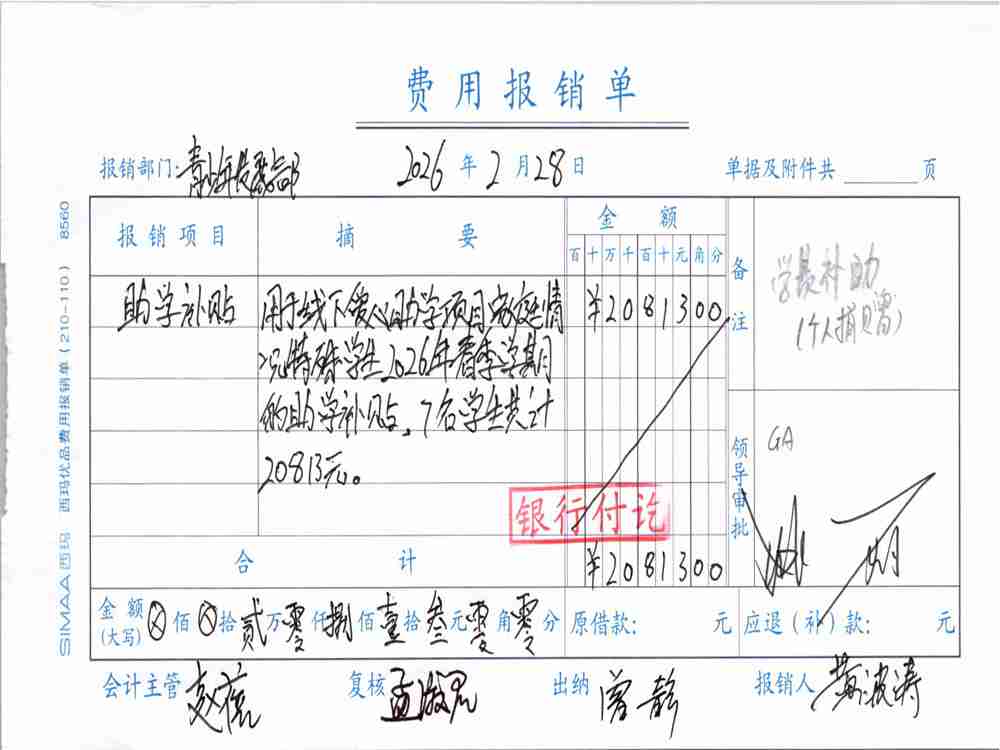 费用报销单
报销部门: 青少年发展部 2026年2月28日 单据及附件共 页
报销项目 摘要 金额 备注
百十万千百十元角分
助学补贴 用于线下爱心助学项目家庭情 ¥2081300
况特殊学生2026年春季学期
的助学补贴，7名学生共计
20813元。
学员补助
（个人捐赠）
领导审批
GA
银行付讫
合计 ¥2081300
金额(大写) ⊗佰⊗拾贰万零仟捌佰壹拾叁元零角零分 原借款: 元 应退（补）款: 元
会计主管 复核 出纳 曾静 报销人 黄波涛
SIMAA西玛 西玛优品费用报销单（210-110） 8560